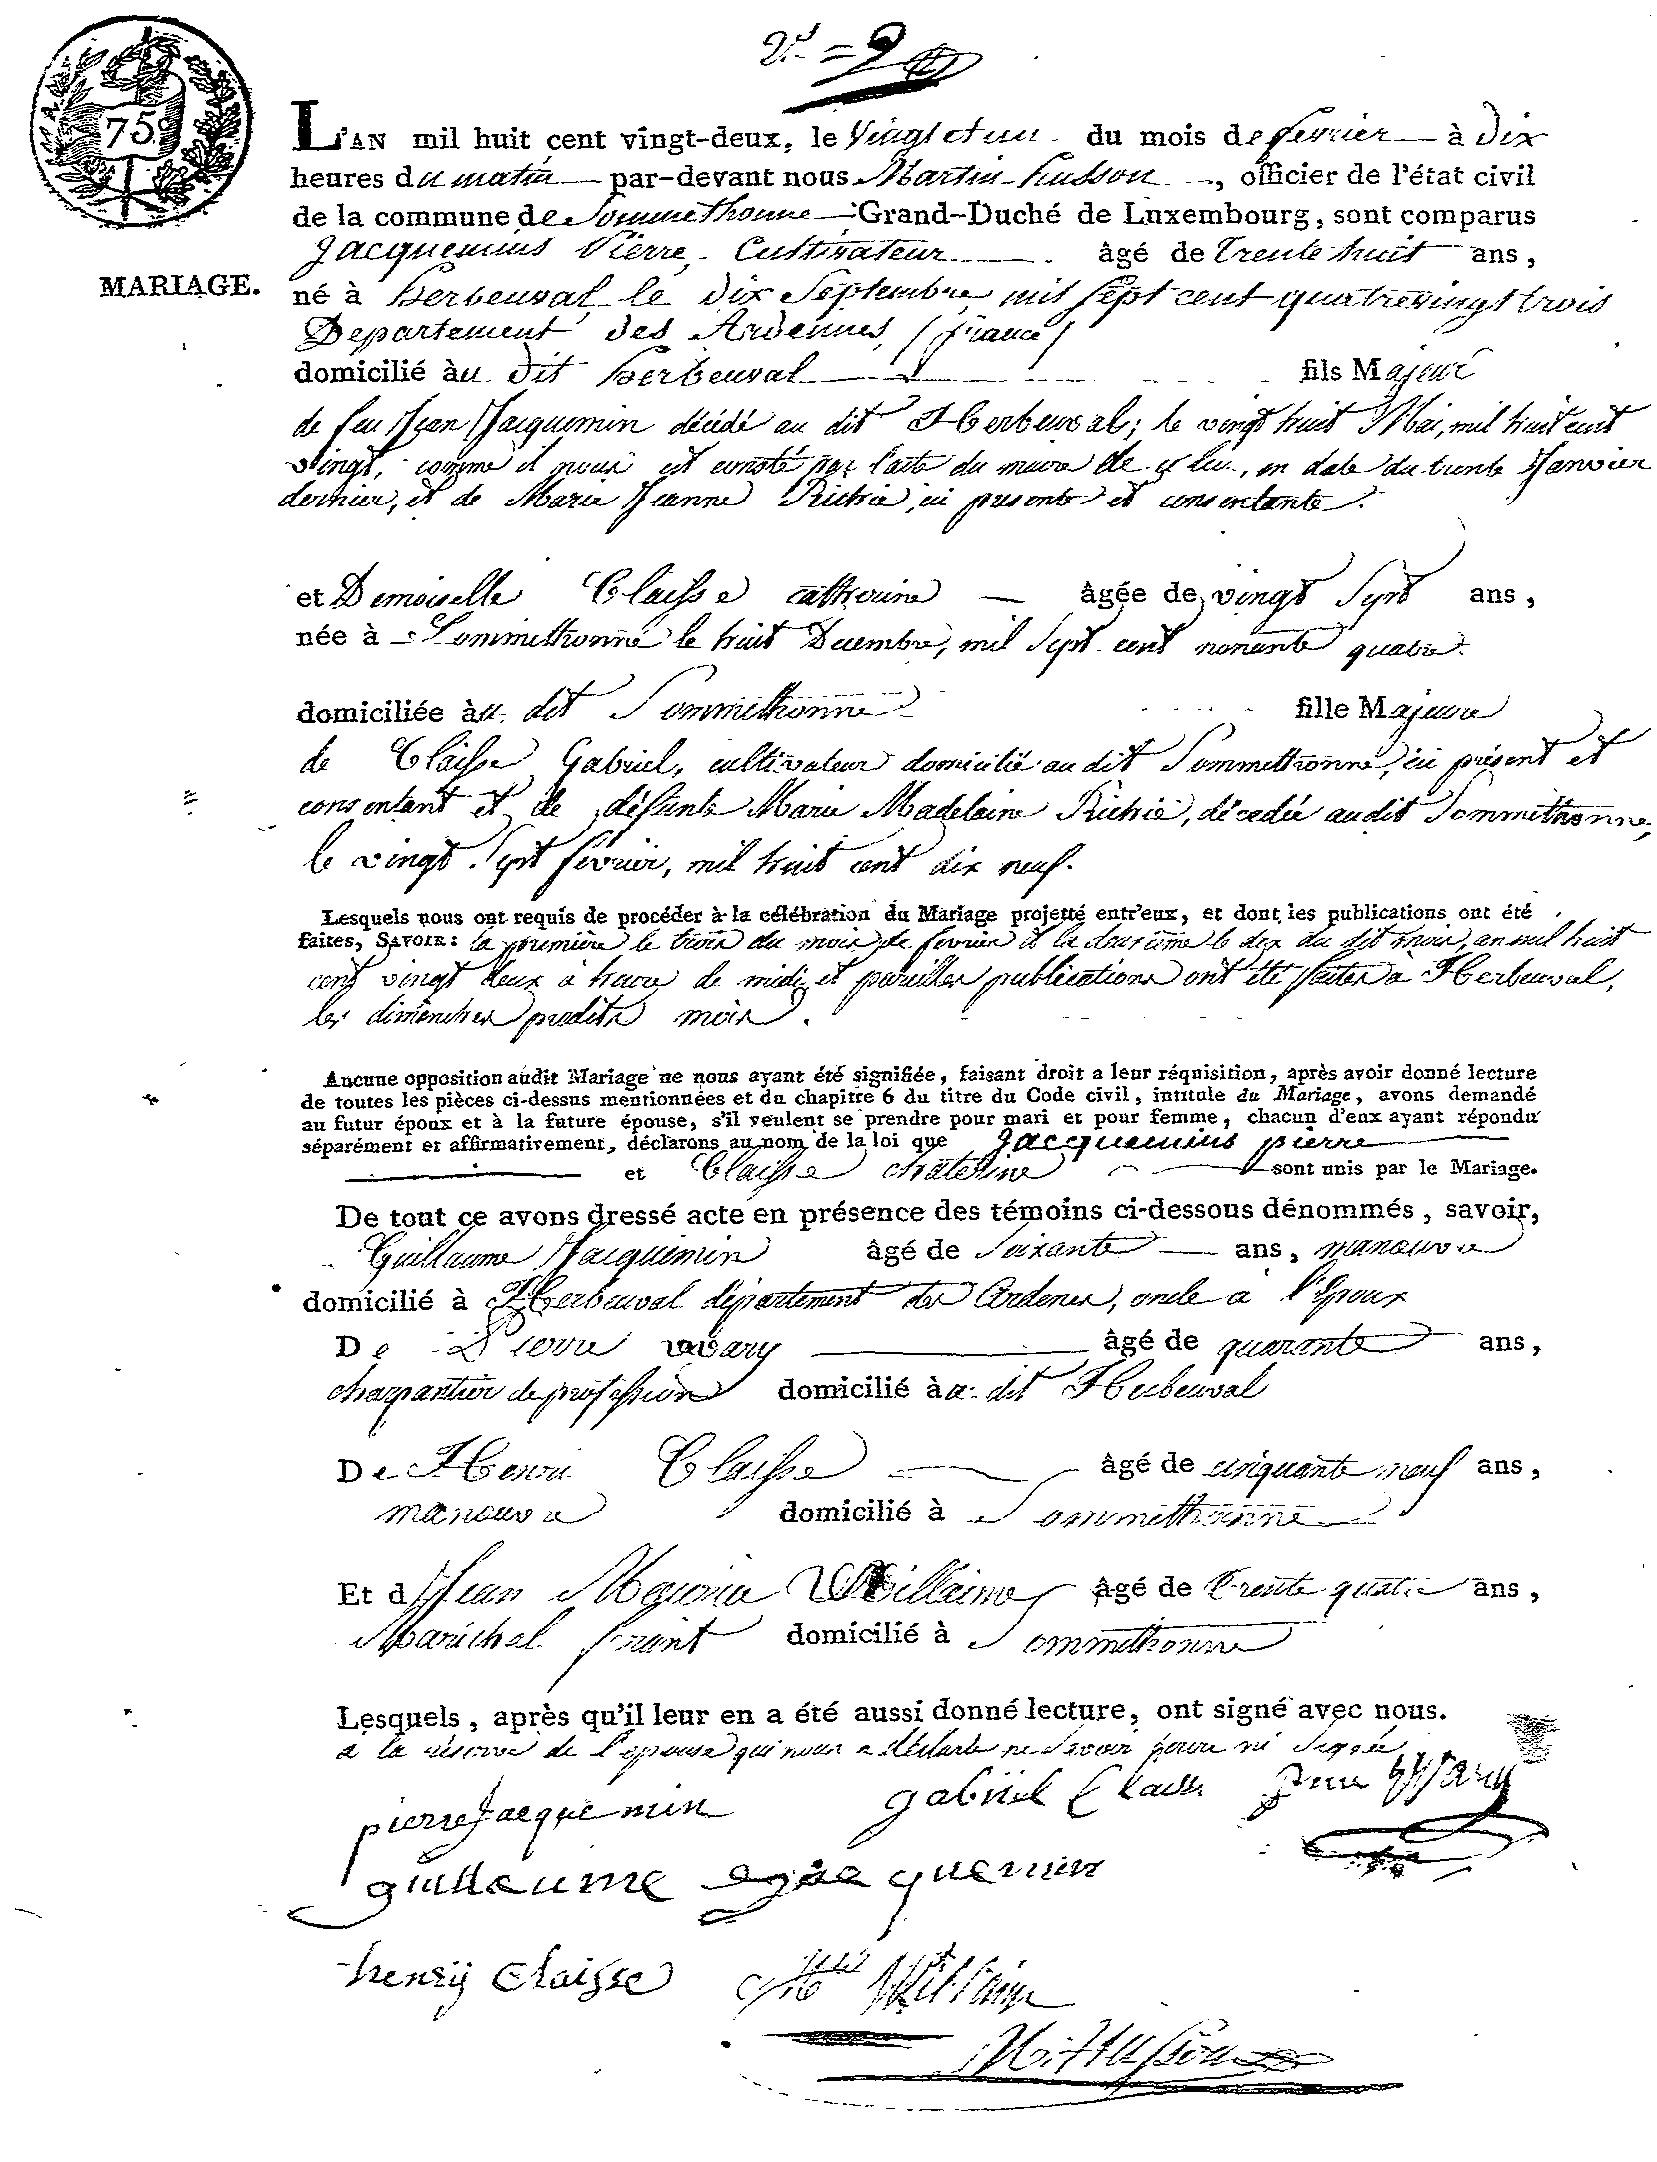 75
L'AN mil huit cent vingt-deux, le vingt et un du mois de fevrier à dix
heures du matin par-devant nous Martin husson, officier de l'état civil
de la commune de Sommethonne Grand-Duché de Luxembourg, sont comparus
Jacquemins Pierre, Cultivateur âgé de trente huit ans,
MARIAGE.
né à herbeuval le dix Septembre mil sept cent quatrevingt trois
Departement des Ardennes, (france)
domicilié au dit herbeuval fils Majeur
de feu Jean Jacquemin décédé au dit Herbeuval; le vingt huit Mai, mil huit cent
vingt, comme il nous est consté par l'acte du maire de , en date du trente Janvier
dernier, et de Marie Jeanne Richié, ici presente et consentante.
et Demoiselle Claisse catherine âgée de vingt Sept ans,
née à Sommethonne le huit Decembre, mil Sept cent nonante quatre.
domiciliée au dit Sommethonne fille Majeure
de Claisse Gabriel, cultivateur domicilié au dit Sommethonne, ici présent et
consentant et de défunte Marie Madelaine Richié, décedée audit Sommethonne,
le vingt Sept fevrier, mil huit cent dix neuf.
Lesquels nous ont requis de procéder à la célébration du Mariage projetté entr'eux, et dont les publications ont été
faites, SAVOIR: la premiere le trois du mois de fevrier et la deuxième le dix du dit mois, an mil huit
cent vingt deux à heure de midi et pareilles publications ont été faites à Herbeuval,
les dimenches predits mois.
Aucune opposition audit Mariage ne nous ayant été signifiée, faisant droit a leur réquisition, après avoir donné lecture
de toutes les pièces ci-dessus mentionnées et du chapitre 6 du titre du Code civil, intitule du Mariage, avons demandé
au futur époux et à la future épouse, s'il veulent se prendre pour mari et pour femme, chacun d'eux ayant répondu
séparément et affirmativement, déclarons au nom de la loi que Jacquemins pierre
et Claisse chaterine sont unis par le Mariage.
De tout ce avons dressé acte en présence des témoins ci-dessous dénommés, savoir,
Guillaume Jacquemin âgé de Soixante ans, manouvre
domicilié à Herbeuval département des Ardenes, oncle a l'Epoux
De Pierre Wary âgé de quarante ans,
charpantier de profession domicilié au dit Herbeuval
De Henri Claisse âgé de cinquante neuf ans,
manouvre domicilié à Sommethonne
Et d Jean Willaime âgé de trente quatre ans,
Maréchal domicilié à Sommethonne
Lesquels, après qu'il leur en a été aussi donné lecture, ont signé avec nous.
a la réserve de l'épouse qui nous a déclaré ne Savoir écrire ni Signée
pierre Jacquemin gabriel Claisse pierre Wary
guilleaume jacquemin
henry Claisse Willaime
M. Husson